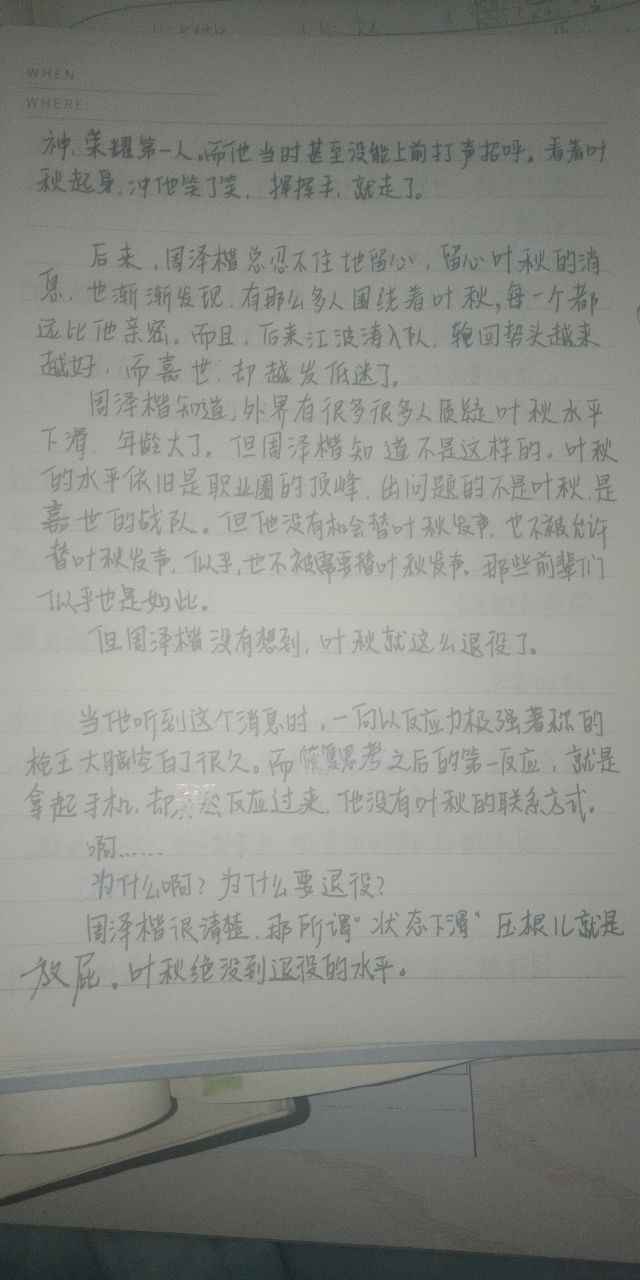 WHEN:
WHERE:
神,荣耀第一人。而他当时甚至没能上前打声招呼。看着叶
秋起身,冲他笑了笑,挥挥手,就走了。
后来,周泽楷总忍不住地留心,留心叶秋的消
息,也渐渐发现,有那么多人围绕着叶秋,每一个都
远比他亲密。而且,后来江波涛入队,轮回势头越来
越好,而嘉世,却越发低迷了。
周泽楷知道,外界有很多很多人质疑叶秋水平
下滑 年龄大了。但周泽楷知道不是这样的。叶秋
的水平依旧是职业圈的顶峰,出问题的不是叶秋,是
嘉世的战队。但他没有机会替叶秋发声,也不被允许
替叶秋发声,似乎,也不被需要替叶秋发声。那些前辈们
似乎也是如此。
但周泽楷没有想到,叶秋就这么退役了。
当他听到这个消息时,一向以反应力极强著称的
枪王大脑空白了很久。而恢复思考之后的第一反应,就是
拿起手机,却突然反应过来,他没有叶秋的联系方式。
啊……
为什么啊?为什么要退役?
周泽楷很清楚,那所谓“状态下滑”压根儿就是
放屁。叶秋绝没到退役的水平。